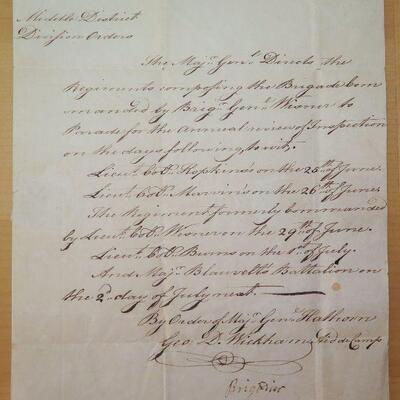 Middle District
Division Orders
The Maj.r Gen.l Directs the
Regiments composing the Brigade com
manded by Brig.r Gen.l Wisner to
Parade for the Annual review & Inspection
on the days following, to wit,
Lieut. Col.o Hopkins's on the 25th of June.
Lieut. Col.o Marvin's on the 26th of June.
The Regiment formerly commanded
by Lieut. Col.o Wisner on the 29th of June.
Lieut. Col.o Burns on the 1st of July.
And Maj.r Blauvelts Battalion on
the 2d day of July next.
By Order of Maj.r Gen.l Hathorn
Geo. D. Wickham Aid de Camp